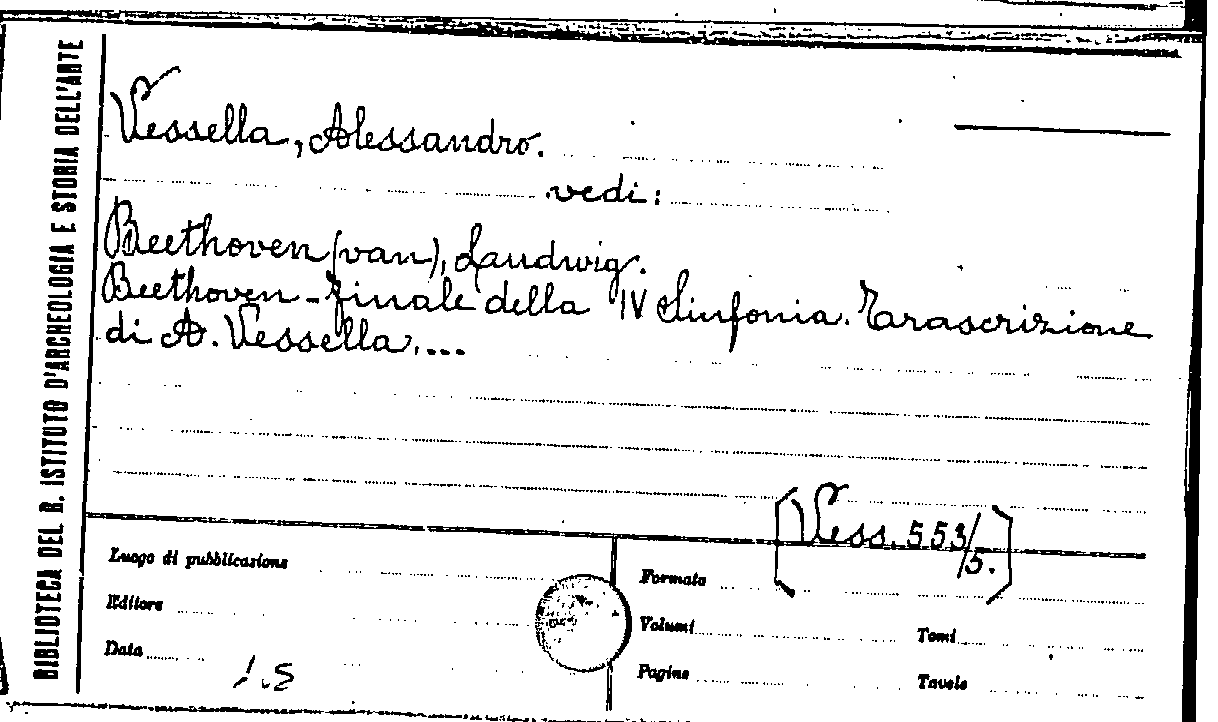 BIBLIOTECA DEL R. ISTITUTO D'ARCHEOLOGIA E STORIA DELL'ARTE
Vessella, Alessandro.
vedi:
Beethoven (van), Laudwig.
Beethoven - Finale della IV Sinfonia. Trascrizione
di A. Vessella....
[Vess. 553/5.]
Luogo di pubblicazione
Editore
Data
Formato
Volumi
Tomi
Pagine
Tavole